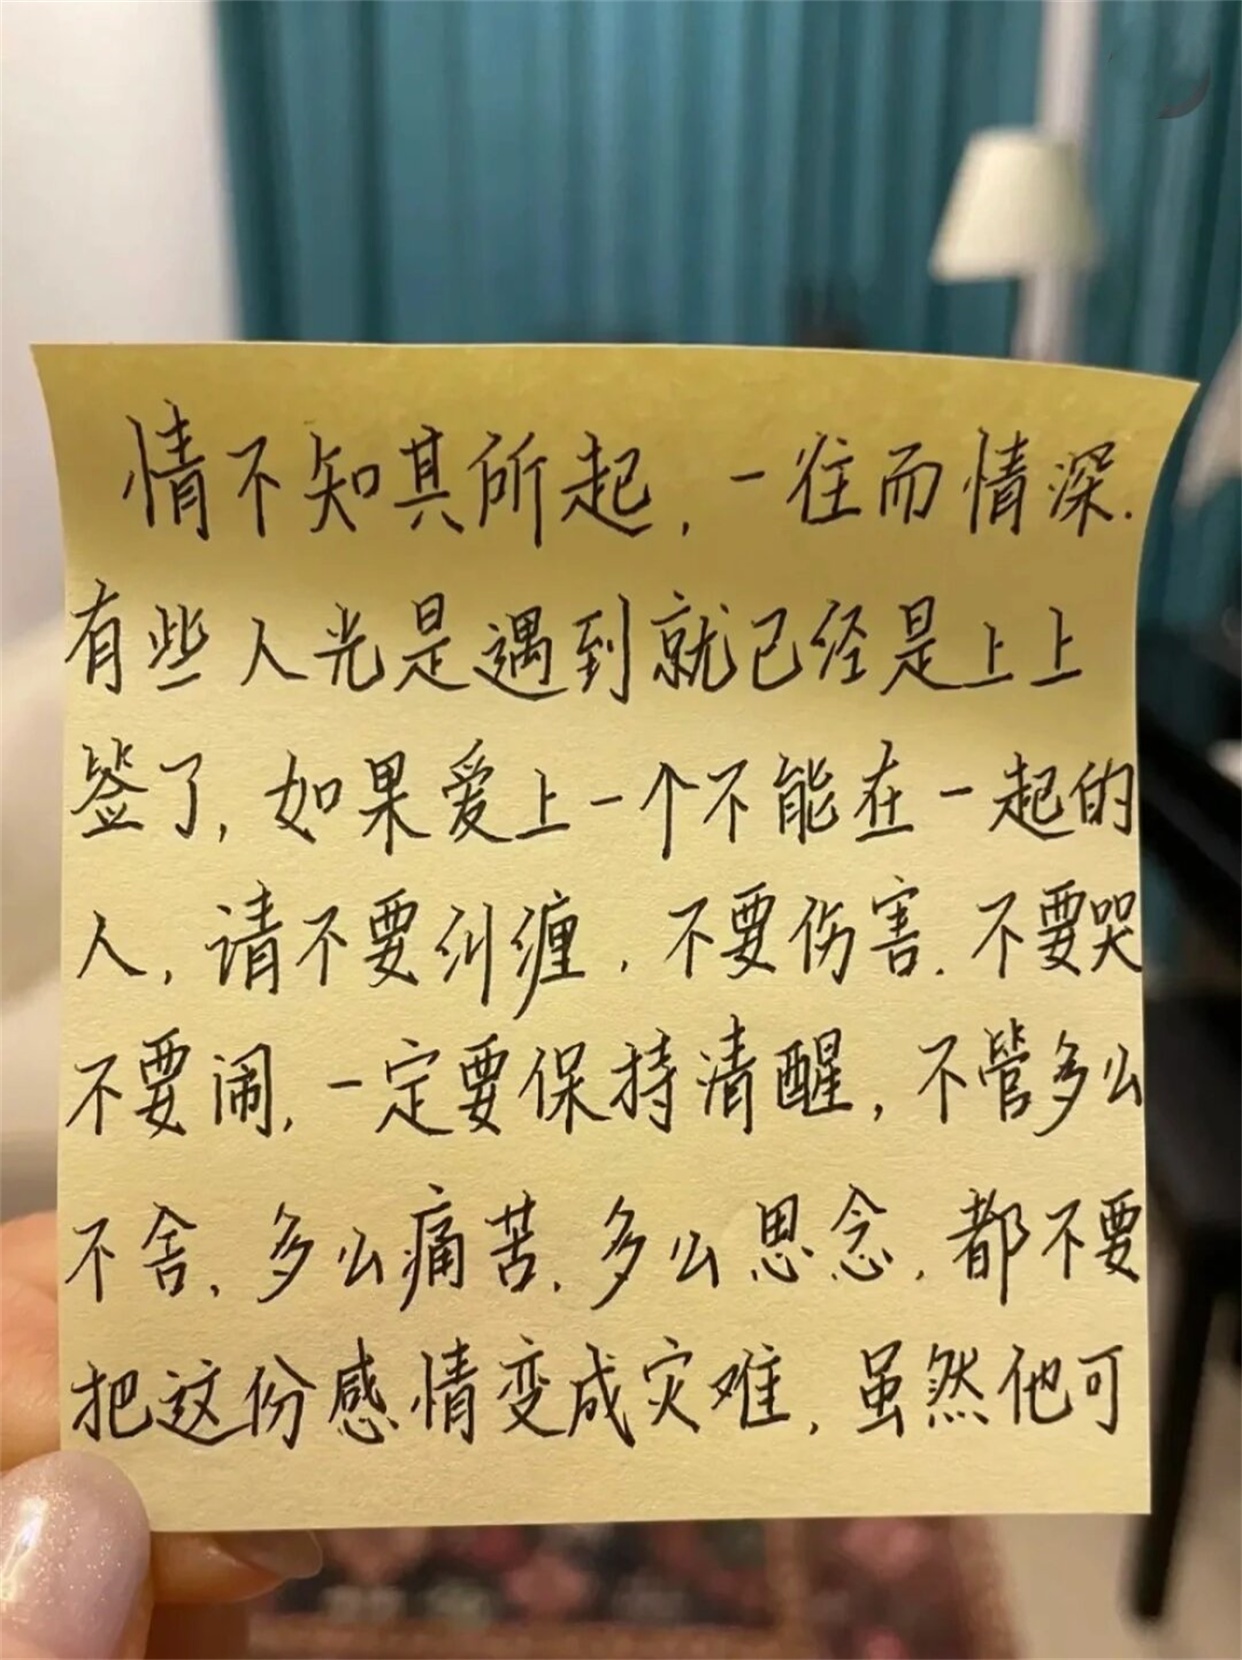 情不知其所起，一往而情深.
有些人光是遇到就已经是上上
签了，如果爱上一个不能在一起的
人，请不要纠缠，不要伤害.不要哭
不要闹，一定要保持清醒，不管多么
不舍，多么痛苦.多么思念，都不要
把这份感情变成灾难，虽然他可